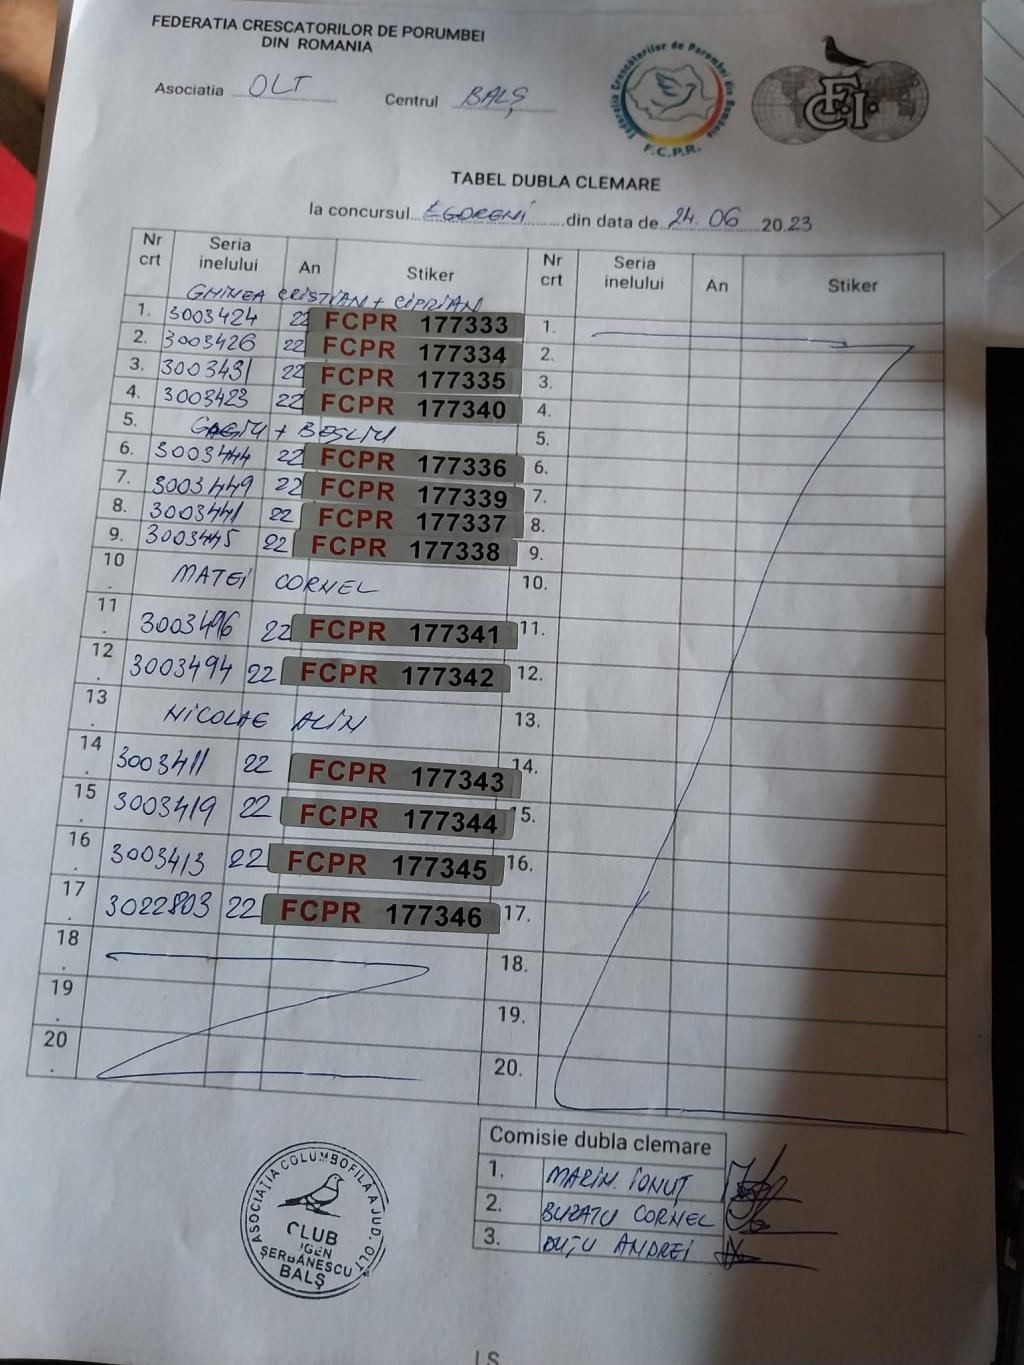 FEDERATIA CRESCATORILOR DE PORUMBEI
DIN ROMANIA
Asociatia OLT Centrul BALȘ
Federatia Crescătorilor de Porumbei din România
F.C.P.R.
FCI
TABEL DUBLA CLEMARE
la concursul EGORENI din data de 24.06 2023
Nr crt Seria inelului An Stiker Nr crt Seria inelului An Stiker
GHINEA CRISTIAN + CIPRIAN
1. 3003424 22 FCPR 177333 1.
2. 3003426 22 FCPR 177334 2.
3. 3003431 22 FCPR 177335 3.
4. 3003423 22 FCPR 177340 4.
5. + BEȘLIU 5.
6. 3003444 22 FCPR 177336 6.
7. 3003449 22 FCPR 177339 7.
8. 3003441 22 FCPR 177337 8.
9. 3003445 22 FCPR 177338 9.
10. MATEI CORNEL 10.
11. 3003496 22 FCPR 177341 11.
12. 3003494 22 FCPR 177342 12.
13. NICOLAE ALIN 13.
14. 3003411 22 FCPR 177343 14.
15. 3003419 22 FCPR 177344 15.
16. 3003413 22 FCPR 177345 16.
17. 3022803 22 FCPR 177346 17.
18. 18.
19. 19.
20. 20.
Comisie dubla clemare
1. MARIN IONUȚ
2. BUZATU CORNEL
3. DUȚU ANDREI
ASOCIATIA COLUMBOFILA A JUD. OLT
CLUB
IGEN
ȘERBĂNESCU
BALȘ
LS